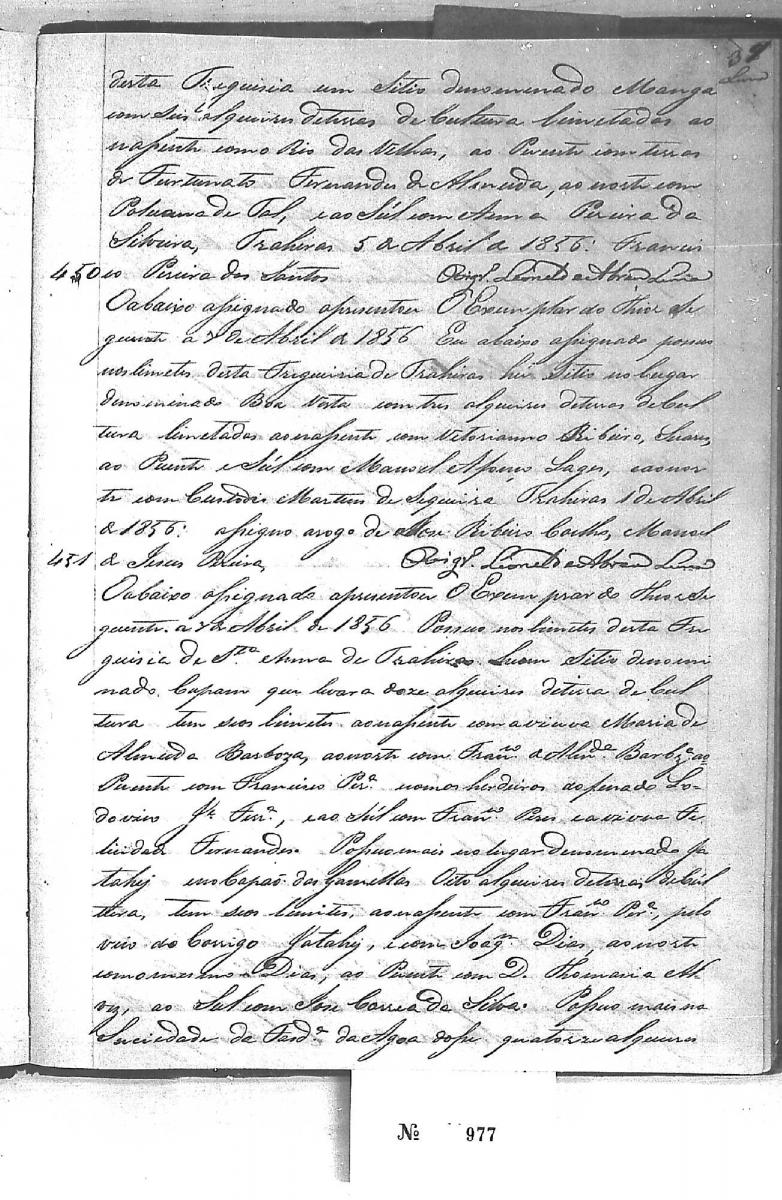 39
desta Freguisia um Sitio denominado Manga
com Seis alqueires deterras de Cultura limetadas ao
nasente com o Rio das Velhas, ao Puente com terras
de Furtunato Fernandes de Almeida, ao norte com
de Tal, e ao Sul com Anna Pereira da
Silveira, Trahiras 5 de Abril de 1856: Francis
450 co Pereira dos Santos
Oabaixo assignado apresentou O Exemplar do Thior se
guinte a 7 de Abril de 1856 Eu abaixo assignado possuo
nos limetes desta Freguizia de Trahiras hũ Sitio no lugar
denominado Boa Vista com tres alqueires deterras de Cul
tura limetadas ao nasente com Vetorianno Ribeiro, Suares,
ao Puente e Sul com Manoel Afonço Lages, e ao nor
te com Custodio Martins de Siqueira Trahiras 1 de Abril
de 1856: assigno arogo de Jose Ribeiro Coelho, Manoel
451 de Jesus Pereira,
Oabaixo assignado apresentou O Exemprar do Thior se
guinte a 7 de Abril de 1856 Possuo nos limetes desta Fre
guisia de Sta Anna de Trahiras hum Sitio denomi
nado Capam que levara doze alqueires deterra de Cul
tura tem seos limetes ao nasente com a viuva Maria de
Almeida Barboza, ao norte com Franco de Almda Barbza ao
Puente com Francisco Pera e com os herdeiros do finado Lo
dovico Je Ferra, e ao Sul com Franco Peres e a viuva Fe
licidade Fernandes. Possuo mais no lugar denomenado Ja
tahy e no Capão das Gamellas Oito alqueires deterras de Cul
tura, tem seos limites, ao nasente com Franco Pera, pelo
veio do Corrigo Jatahy, e com Joaqm Dias, ao norte
com o mesmo Dias, ao Puente com D. Thomazia Al
vez, ao Sul com Jose Correa da Silva. Possuo mais na
Suciedade da Fazda da Agoa dose quatorze alqueires
№ 977